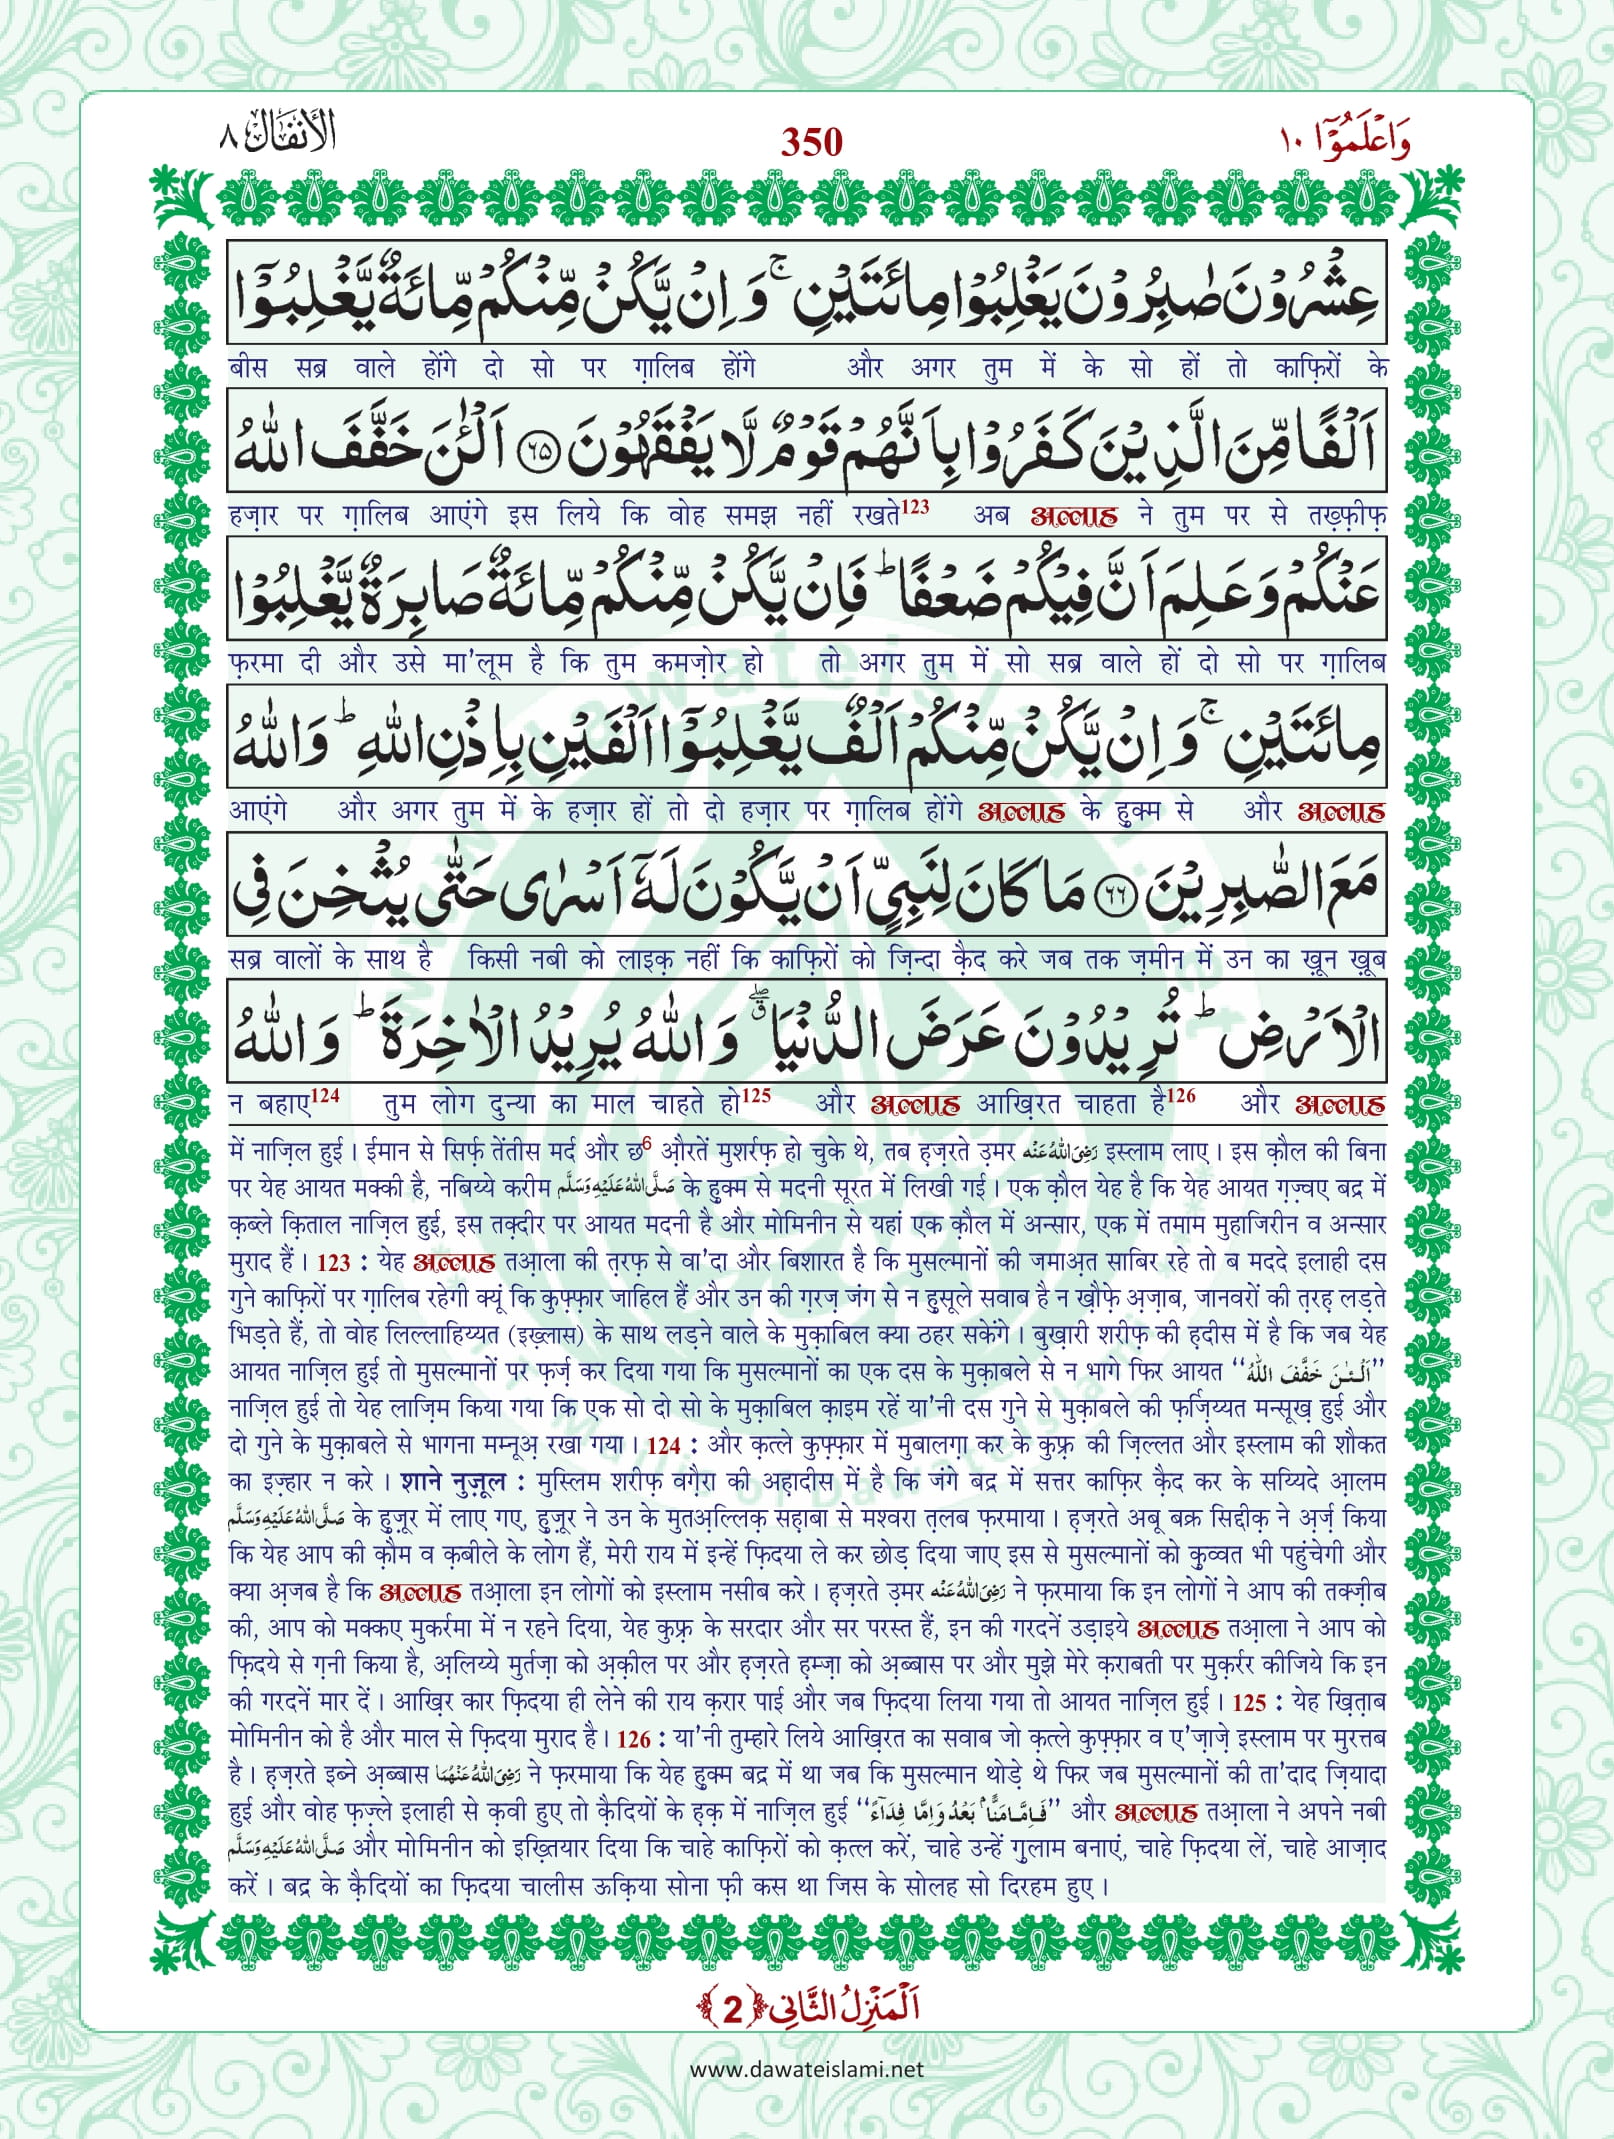 الأنفال ٨
350
وَاعْلَمُوْۤا ١٠
عِشْرُوْنَ صٰبِرُوْنَ یَغْلِبُوْا مِائَتَیْنِ ۚ وَ اِنْ یَّكُنْ مِّنْكُمْ مِّائَةٌ یَّغْلِبُوْۤا
बीस सब्र वाले होंगे दो सो पर ग़ालिब होंगे और अगर तुम में के सो हों तो काफ़िरों के
اَلْفًا مِّنَ الَّذِیْنَ كَفَرُوْا بِاَنَّهُمْ قَوْمٌ لَّا یَفْقَهُوْنَ ﴿٦٥﴾ اَلْـٰٔنَ خَفَّفَ اللّٰهُ
हज़ार पर ग़ालिब आएंगे इस लिये कि वोह समझ नहीं रखते123 अब अल्लाह ने तुम पर से तख़्फ़ीफ़
عَنْكُمْ وَ عَلِمَ اَنَّ فِیْكُمْ ضَعْفًا ؕ فَاِنْ یَّكُنْ مِّنْكُمْ مِّائَةٌ صَابِرَةٌ یَّغْلِبُوْا
फ़रमा दी और उसे मा'लूम है कि तुम कमज़ोर हो तो अगर तुम में सो सब्र वाले हों दो सो पर ग़ालिब
مِائَتَیْنِ ۚ وَ اِنْ یَّكُنْ مِّنْكُمْ اَلْفٌ یَّغْلِبُوْۤا اَلْفَیْنِ بِاِذْنِ اللّٰهِ ؕ وَ اللّٰهُ
आएंगे और अगर तुम में के हज़ार हों तो दो हज़ार पर ग़ालिब होंगे अल्लाह के हुक्म से और अल्लाह
مَعَ الصّٰبِرِیْنَ ﴿٦٦﴾ مَا كَانَ لِنَبِیٍّ اَنْ یَّكُوْنَ لَهٗۤ اَسْرٰى حَتّٰى یُثْخِنَ فِی
सब्र वालों के साथ है किसी नबी को लाइक़ नहीं कि काफ़िरों को ज़िन्दा क़ैद करे जब तक ज़मीन में उन का ख़ून ख़ूब
الْاَرْضِ ؕ تُرِیْدُوْنَ عَرَضَ الدُّنْیَا ۖۗ وَ اللّٰهُ یُرِیْدُ الْاٰخِرَةَ ؕ وَ اللّٰهُ
न बहाए124 तुम लोग दुन्या का माल चाहते हो125 और अल्लाह आख़िरत चाहता है126 और अल्लाह
में नाज़िल हुई । ईमान से सिर्फ़ तेंतीस मर्द और छ6 औ़रतें मुशर्रफ़ हो चुके थे, तब ह़ज़रते उ़मर رَضِیَ اللّٰهُ عَنْه इस्लाम लाए । इस क़ौल की बिना
पर येह आयत मक्की है, नबिय्ये करीम صَلَّى اللّٰهُ عَلَیْهِ وَسَلَّم के हुक्म से मदनी सूरत में लिखी गई । एक क़ौल येह है कि येह आयत ग़ज़्वए बद्र में
क़ब्ले क़िताल नाज़िल हुई, इस तक़्दीर पर आयत मदनी है और मोमिनीन से यहां एक क़ौल में अन्सार, एक में तमाम मुहाजिरीन व अन्सार
मुराद हैं । 123 : येह अल्लाह तआ़ला की त़रफ़ से वा'दा और बिशारत है कि मुसल्मानों की जमाअ़त साबिर रहे तो ब मददे इलाही दस
गुने काफ़िरों पर ग़ालिब रहेगी क्यूं कि कुफ़्फ़ार जाहिल हैं और उन की ग़रज़ जंग से न हुसूले सवाब है न ख़ौफ़े अ़ज़ाब, जानवरों की त़रह़ लड़ते
भिड़ते हैं, तो वोह लिल्लाहिय्यत (इख़्लास) के साथ लड़ने वाले के मुक़ाबिल क्या ठहर सकेंगे । बुख़ारी शरीफ़ की ह़दीस में है कि जब येह
आयत नाज़िल हुई तो मुसल्मानों पर फ़र्ज़ कर दिया गया कि मुसल्मानों का एक दस के मुक़ाबले से न भागे फिर आयत “اَلْـٰٔنَ خَفَّفَ اللّٰهُ”
नाज़िल हुई तो येह लाज़िम किया गया कि एक सो दो सो के मुक़ाबिल क़ाइम रहें या'नी दस गुने से मुक़ाबले की फ़र्ज़िय्यत मन्सूख़ हुई और
दो गुने के मुक़ाबले से भागना मम्नूअ़ रखा गया । 124 : और क़त्ले कुफ़्फ़ार में मुबालग़ा कर के कुफ़्र की ज़िल्लत और इस्लाम की शौकत
का इज़्हार न करे । शाने नुज़ूल : मुस्लिम शरीफ़ वग़ैरा की अह़ादीस में है कि जंगे बद्र में सत्तर काफ़िर क़ैद कर के सय्यिदे आ़लम
صَلَّى اللّٰهُ عَلَیْهِ وَسَلَّم के हुज़ूर में लाए गए, हुज़ूर ने उन के मुतअ़ल्लिक़ सह़ाबा से मश्वरा त़लब फ़रमाया । ह़ज़रते अबू बक्र सिद्दीक़ ने अ़र्ज़ किया
कि येह आप की क़ौम व क़बीले के लोग हैं, मेरी राय में इन्हें फ़िदया ले कर छोड़ दिया जाए इस से मुसल्मानों को क़ुव्वत भी पहुंचेगी और
क्या अ़जब है कि अल्लाह तआ़ला इन लोगों को इस्लाम नसीब करे । ह़ज़रते उ़मर رَضِیَ اللّٰهُ عَنْه ने फ़रमाया कि इन लोगों ने आप की तक्ज़ीब
की, आप को मक्कए मुकर्रमा में न रहने दिया, येह कुफ़्र के सरदार और सर परस्त हैं, इन की गरदनें उड़ाइये अल्लाह तआ़ला ने आप को
फ़िदये से ग़नी किया है, अ़लिय्ये मुर्तज़ा को अ़क़ील पर और ह़ज़रते ह़म्ज़ा को अ़ब्बास पर और मुझे मेरे क़राबती पर मुक़र्रर कीजिये कि इन
की गरदनें मार दें । आख़िर कार फ़िदया ही लेने की राय क़रार पाई और जब फ़िदया लिया गया तो आयत नाज़िल हुई । 125 : येह ख़ित़ाब
मोमिनीन को है और माल से फ़िदया मुराद है । 126 : या'नी तुम्हारे लिये आख़िरत का सवाब जो क़त्ले कुफ़्फ़ार व ए'ज़ाज़े इस्लाम पर मुरत्तब
है । ह़ज़रते इब्ने अ़ब्बास رَضِیَ اللّٰهُ عَنْهُمَا ने फ़रमाया कि येह हुक्म बद्र में था जब कि मुसल्मान थोड़े थे फिर जब मुसल्मानों की ता'दाद ज़ियादा
हुई और वोह फ़ज़्ले इलाही से क़वी हुए तो क़ैदियों के ह़क़ में नाज़िल हुई “فَاِمَّا مَنًّۢا بَعْدُ وَ اِمَّا فِدَآءً” और अल्लाह तआ़ला ने अपने नबी
صَلَّى اللّٰهُ عَلَیْهِ وَسَلَّم और मोमिनीन को इख़्तियार दिया कि चाहे काफ़िरों को क़त्ल करें, चाहे उन्हें ग़ुलाम बनाएं, चाहे फ़िदया लें, चाहे आज़ाद
करें । बद्र के क़ैदियों का फ़िदया चालीस ऊक़िया सोना फ़ी कस था जिस के सोलह सो दिरहम हुए ।
اَلْمَنْزِلُ الثَّانِی ﴿2﴾
www.dawateislami.net